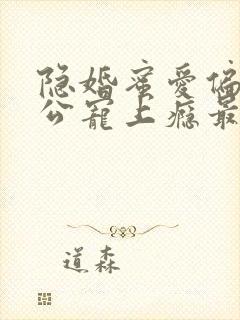 隐婚蜜爱偏
公宠上瘾最
道森